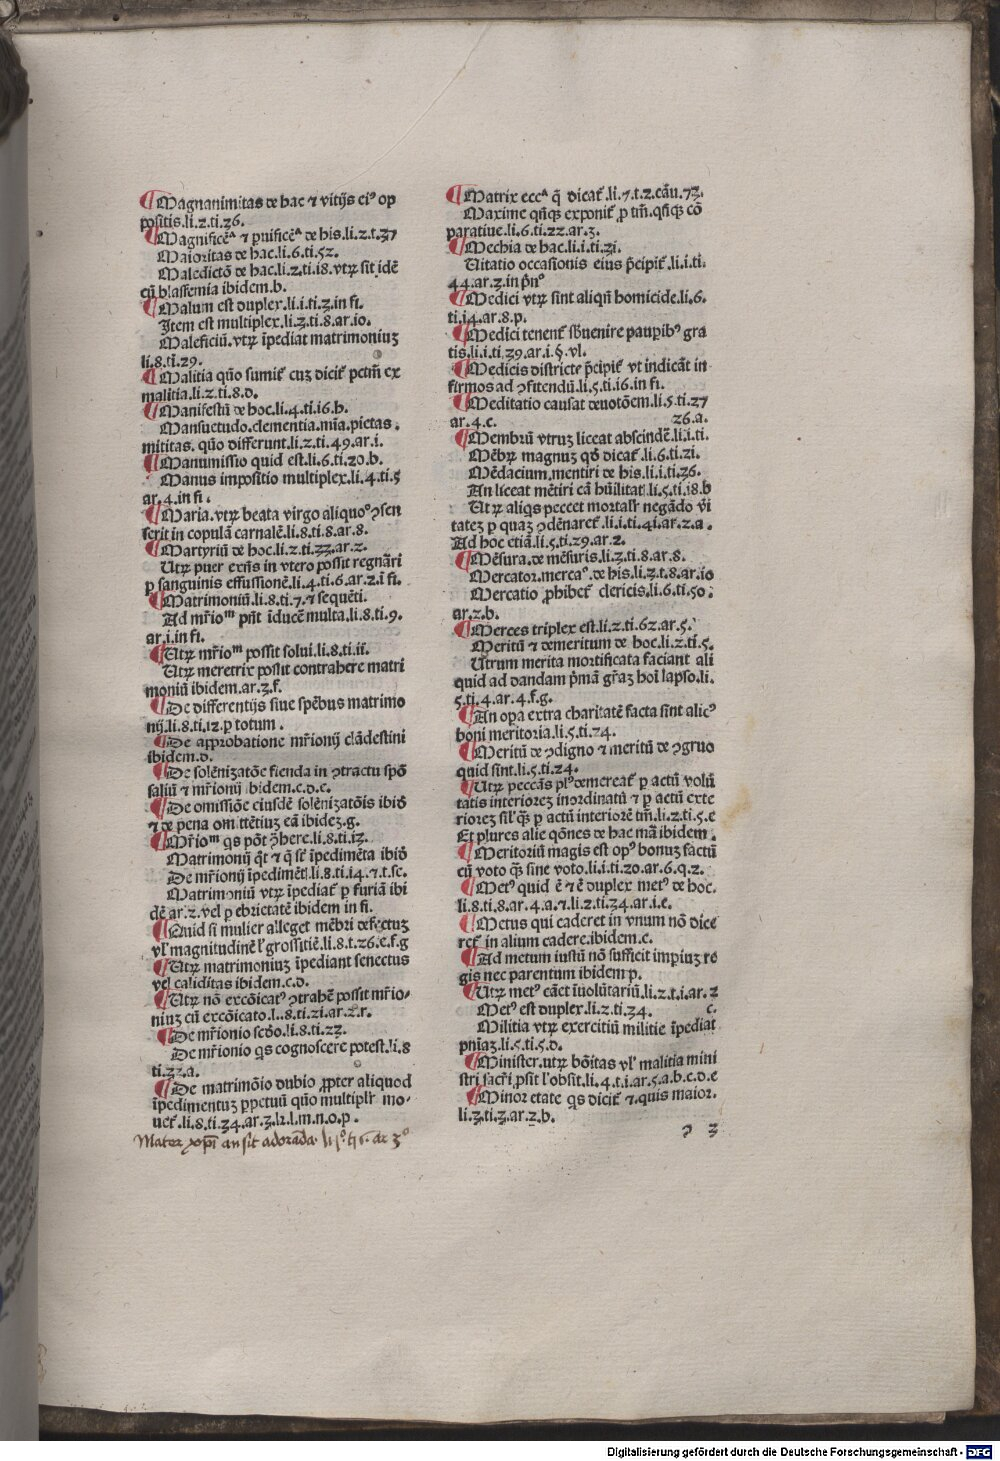 ¶Magnanimitas de hac ⁊ vitijs eiꝰ op
positis.li.2.ti.26.
¶Magnificēᵃ ⁊ ꝑuificēᵃ de his.li.2.t.37
Maioritas de hac.li.6.ti.52.
Maledictō de hac.li.2.ti.18.vtꝝ sit idē
cū blasfemia ibidem.b.
¶Malum est duplex.li.i.ti.3.in fi.
Item est multiplex.li.3.ti.8.ar.io.
Maleficiū.vtꝝ īpediat matrimoniuꝫ
li.8.ti.29.
¶Malitia qūo sumiť cuꝫ diciť pctm̄ ex
malitia.li.2.ti.8.d.
¶Manifestū de hoc.li.4.ti.i6.h.
Mansuetudo.clementia.mīa.pietas.
mititas.quō differunt.li.2.ti.49.ar.i.
¶Manumissio quid est.li.6.ti.20.b.
Manus impositio multiplex.li.4.ti.5
ar.4.in fi.
¶Maria.vtꝝ beata virgo aliquoº ꝯsen
serit in copulā carnalē.li.8.ti.8.ar.8.
¶Martyriū de hoc.li.2.ti.33.ar.2.
Utꝝ puer exn̄s in vtero possit regnāri
ꝑ sanguinis effussionē.li.4.ti.6.ar.2.ī fi.
¶Matrimoniū.li.8.ti.7.⁊ sequēti.
Ad mr̄ioᵐ pn̄t īducē multa.li.8.ti.9.
ar.i.in fi.
¶Utꝝ mr̄ioᵐ possit solui.li.8.ti.ii.
Utꝝ meretrix possit contrahere matri
moniū ibidem.ar.3.f.
¶De differentijs siue spēbus matrimo
nij.li.8.ti.i2.ꝑ totum.
¶De approbatione mr̄ionij clādestini
ibidem.d.
¶De solēnizatōe fienda in ꝯtractu spō
saliū ⁊ mr̄ionij ibidem.c.d.e.
¶De omissiōe eiusdē solēnizatōis ibiđ
⁊ de pena omittētiuꝫ eā ibideꝫ.g.
¶Mr̄ioᵐ qs pōt ꝯhere.li.8.ti.i3.
Matrimonij q̄t ⁊ q̄ sť īpedimēta ibiđ
De mr̄ionij īpedimēť.li.8.ti.i4.⁊.t.sc.
Matrimoniū vtꝝ īpediať ꝑ furiā ibi
dē ar.2.vel ꝑ ebrietatē ibidem in fi.
¶Quid si mulier alleget mēbri defectuꝫ
vl' magnitudinē l' grossitiē.li.8.t.26.e.f.g
¶Utꝝ matrimoniuꝫ īpediant senectus
vel caliditas ibidem.c.d.
¶Utꝝ nō excōicatꝰ ꝯtrahē possit mr̄io-
niuꝫ cū excōicato.l..8.ti.2i.ar.2.r.
¶De mr̄ionio scđo.li.8.ti.23.
De mr̄ionio qs cognoscere potest.li.8
ti.22.a.
¶De matrimōio dubio ꝓpter aliquod
īpedimentuꝫ ꝑpetuū quō multiplr̄ mo-
ueť.li.8.ti.34.ar.3.k.l.m.n.o.p.
Mater xp̄i an sit adoranda. li 3º. ti 6. ar 3º
¶Matrix eccᵃ q̄ dicať.li.7.t.2.cāu.73.
Maxime qn̄qꝫ exponiť ꝑ tm̄.qn̄qꝫ cō
paratiue.li.6.ti.22.ar.3.
¶Mechia de hac.li.i.ti.3i.
Uitatio occasionis eius p̄cipiť.li.i.ti.
44.ar.3.in p̄nº
¶Medici vtꝝ sint aliqn̄ homicide.li.6.
ti.i4.ar.8.p.
¶Medici tenenť sb̄uenire pauꝑibꝰ gra
tis.li.i.ti.39.ar.i.§.vl.
¶Medicis districte p̄cipiť vt indicāt in
firmos ad ꝯfitendū.li.5.ti.i6.in fi.
¶Meditatio causat deuotōem.li.5.ti.27
ar.4.c. 26.a.
¶Membrū vtruꝫ liceat abscindē.li.i.ti.
Mēbꝝ magnuꝫ qđ dicať.li.6.ti.2i.
Mēdacium.mentiri de his.li.i.ti.36.
An liceat mētiri cā hūilitať.li.5.ti.i8.b
Utꝝ aliqs peccet mortalr̄ negādo v̄i
tateꝫ ꝑ quaꝫ ꝯdēnareť.li.i.ti.4i.ar.2.a.
Ad hoc etiā.li.5.ti.29.ar.2.
¶Mēsura.de mēsuris.li.3.ti.8.ar.8.
Mercator.mercaº.de his.li.3.t.8.ar.io
Mercatio ꝓhibeť clericis.li.6.ti.50.
ar.2.b.
¶Merces triplex est.li.2.ti.62.ar.5.
Meritū ⁊ demeritum de hoc.li.2.ti.5.
Utrum merita mortificata faciant ali
quid ad dandam p̄mā gr̄aꝫ hoī lapso.li.
5.ti.4.ar.4.f.g.
¶An oꝑa extra charitatē facta sint alicꝰ
boni meritoria.li.5.ti.24.
¶Meritū de ꝯdigno ⁊ meritū de ꝯgruo
quid sint.li.5.ti.24.
¶Utꝝ peccās plꝰ demereať ꝑ actū volū
tatis interioreꝫ inordinatū ⁊ ꝑ actū exte
rioreꝫ sil' qꝫ ꝑ actū interiorē tm̄.li.2.ti.5.e
Et plures alie qōnes de hac mā ibidem.
¶Meritoriū magis est opꝰ bonuꝫ factū
cū voto qꝫ sine voto.li.i.ti.20.ar.6.q.2.
¶Metꝰ quid ē ⁊ ē duplex metꝰ de hoc.
li.8.ti.8.ar.4.a.⁊.li.2.ti.34.ar.i.e.
¶Metus qui caderet in vnum nō dice
reť in alium cadere.ibidem.e.
¶Ad metum iustū nō sufficit impiuꝫ re
gis nec parentum ibidem p.
¶Utꝝ metꝰ cāet īuolūtariū.li.2.t.i.ar.2
Metꝰ est duplex.li.2.ti.34. c.
Militia vtꝝ exercitiū militie īpediať
pnīaꝫ.li.5.ti.5.d.
¶Minister.utꝝ bōitas vl' malitia mini
stri sacr̄i ꝓsit l' obsit.li.4.t.i.ar.5.a.b.c.d.e
¶Minor etate qs diciť ⁊.quis maior.
li.3.ti.3.ar.2.b.
ꝛ 3
Digitalisierung gefördert durch die Deutsche Forschungsgemeinschaft - DFG